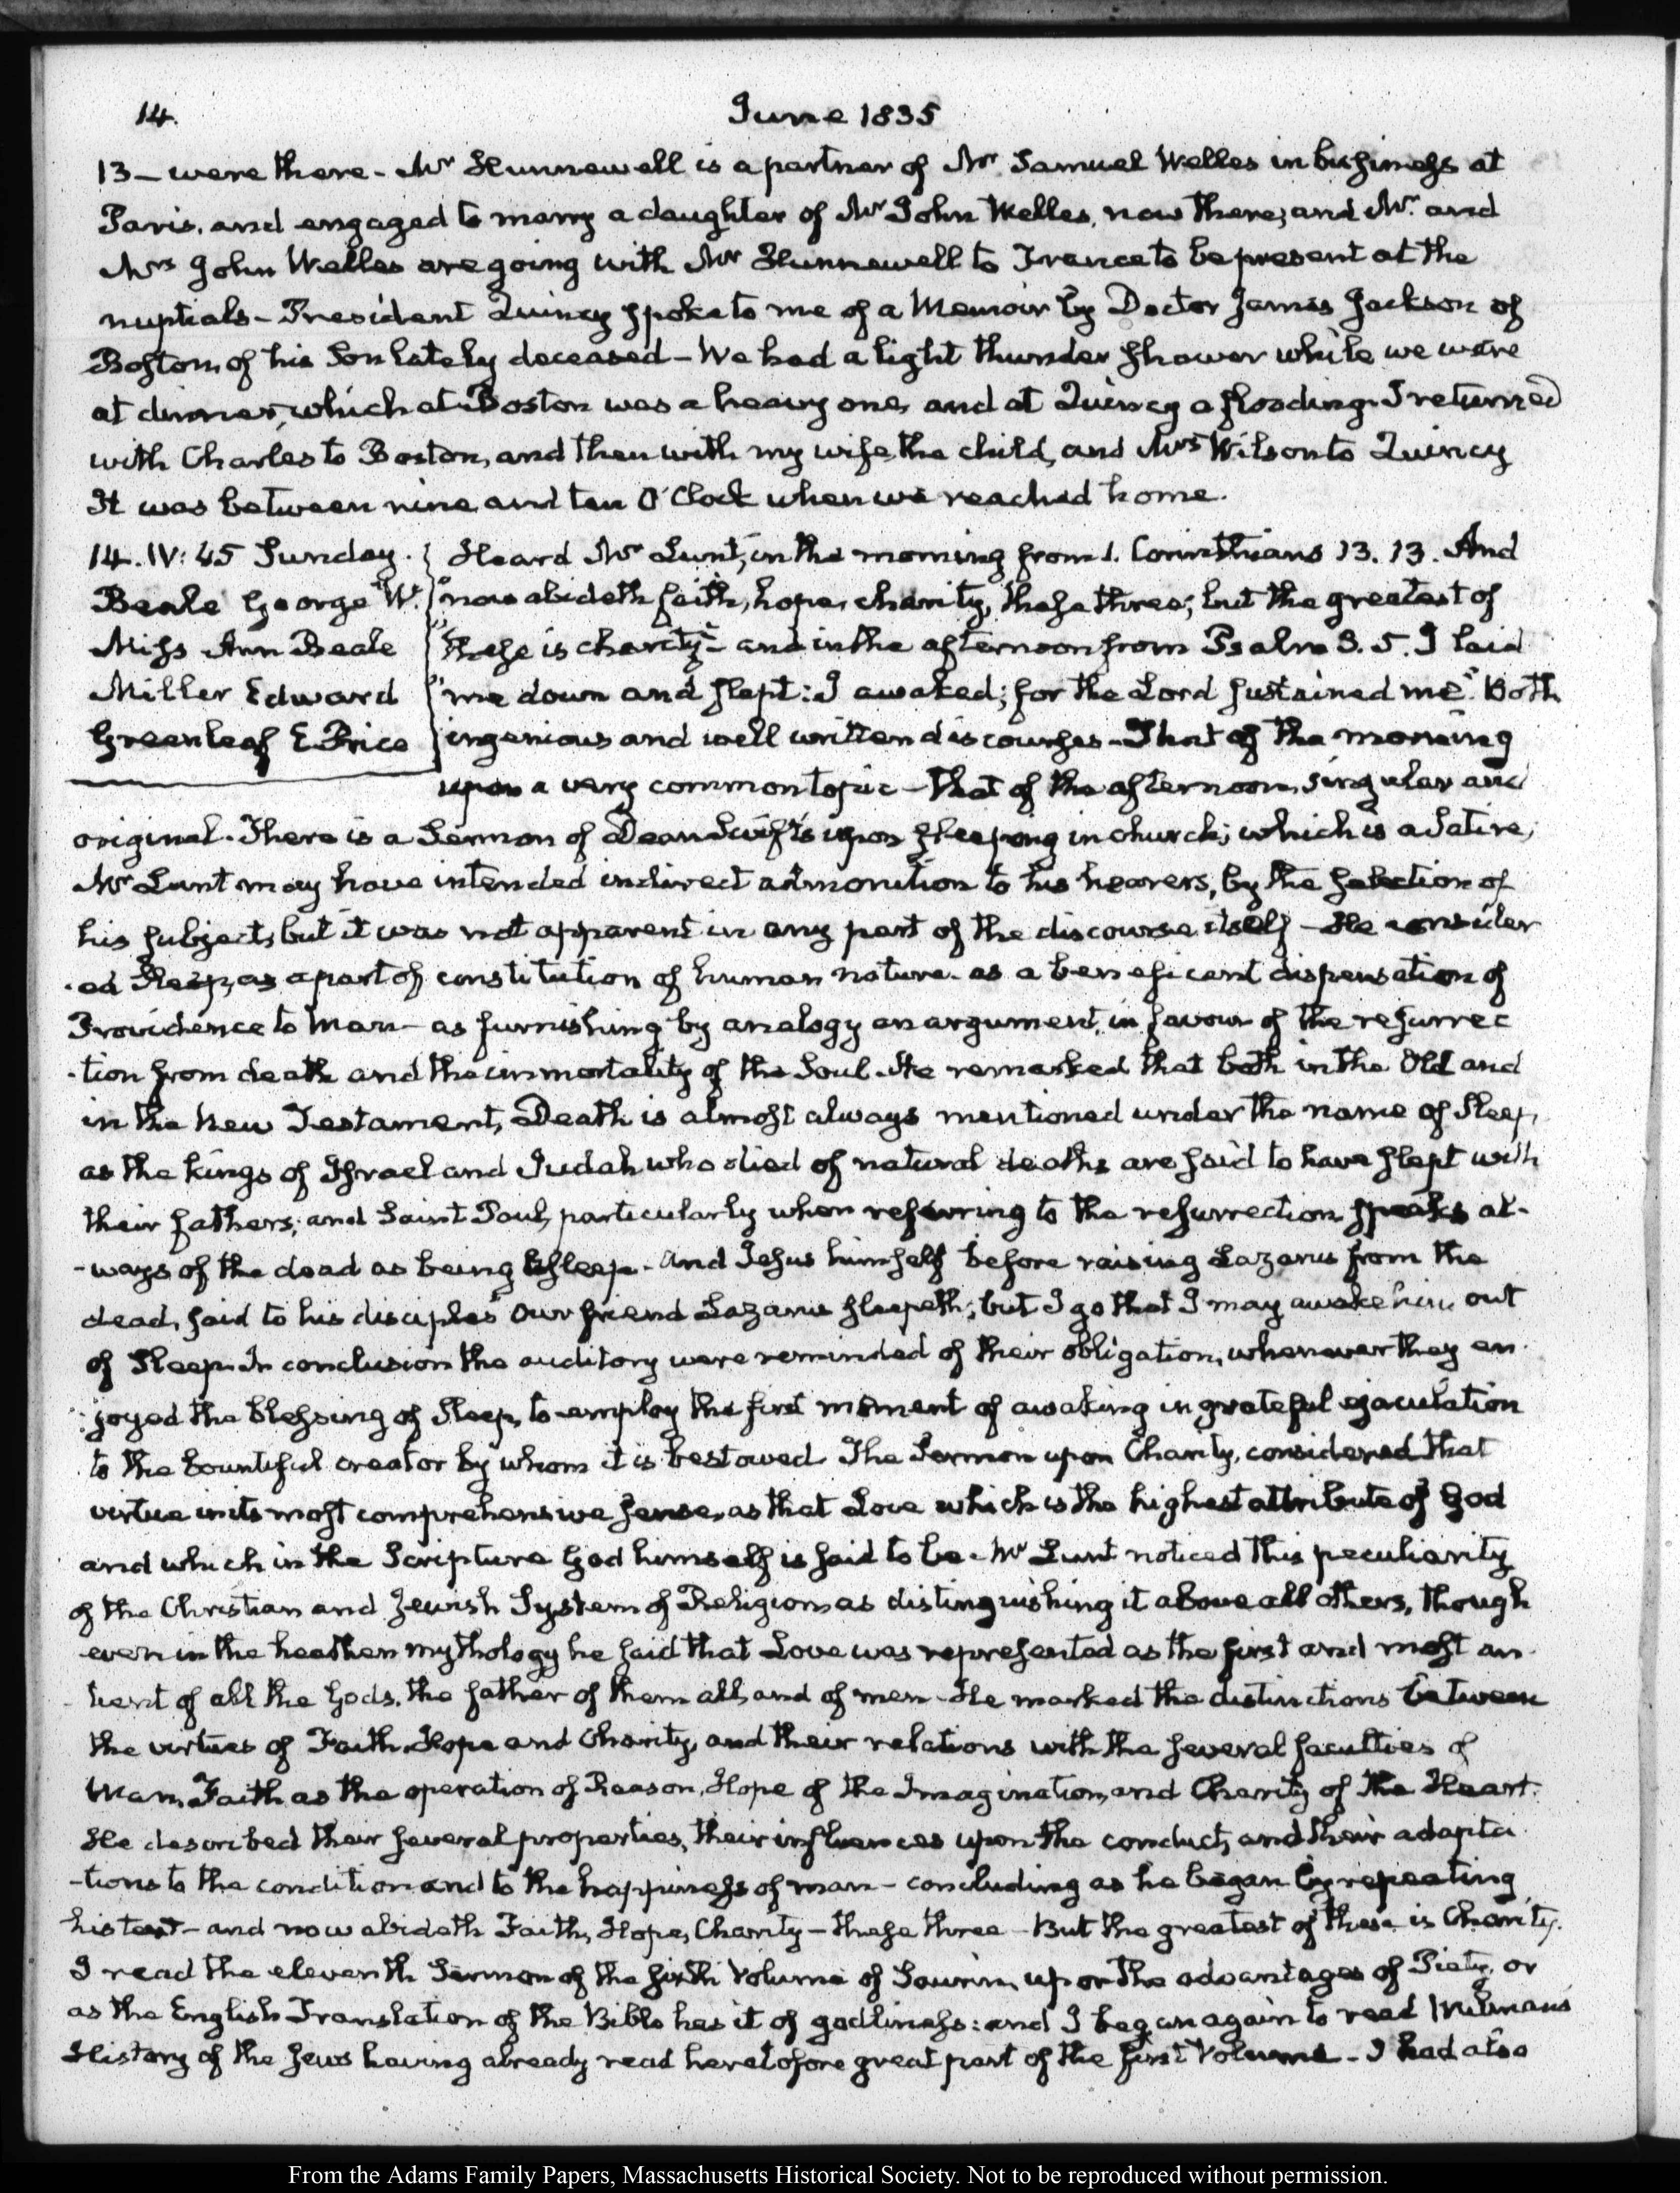 14.
June 1835
13 — were there - Mr Hunnewell is a partner of Mr Samuel Welles in business at
Paris, and engaged to marry a daughter of Mr John Welles, now there; and Mr and
Mrs John Welles are going with Mr Hunnewell to France to be present at the
nuptials - President Quincy spoke to me of a Memoir by Doctor James Jackson of
Boston, of his Son lately deceased - We had a light thunder shower while we were
at dinner, which at Boston was a heavy one, and at Quincy a flooding. I returned
with Charles to Boston, and then with my wife, the child, and Mrs Wilson to Quincy
It was between nine and ten O'Clock when we reached home.
14. IV: 45 Sunday.
Beale George W.
Miss Ann Beale
Miller Edward
Greenleaf E Price
Heard Mr Lunt, in the morning from 1. Corinthians 13. 13. And
"now abideth faith, hope, charity, these three; but the greatest of
"these is charity" - and in the afternoon from Psalm 3. 5. I laid
"me down and slept: I awaked; for the Lord sustained me." Both
ingenious and well written discourses - That of the morning
upon a very common topic - that of the afternoon, singular and
original. There is a Sermon of Dean Swift's upon sleeping in church; which is a Satire;
Mr Lunt may have intended indirect admonition to his hearers, by the selection of
his subject, but it was not apparent in any part of the discourse itself - He consider
-ed Sleep, as a part of constitution of human nature - as a beneficent dispensation of
Providence to Man - as furnishing by analogy an argument, in favour of the resurrec
-tion from death and the immortality of the Soul. He remarked that both in the Old and
in the New Testament, Death is almost always mentioned under the name of Sleep,
as the kings of Israel and Judah who died of natural deaths are said to have slept with
their fathers; and Saint Paul, particularly when referring to the resurrection speaks al-
-ways of the dead as being asleep - And Jesus himself before raising Lazarus from the
dead, said to his disciples "Our friend Lazarus sleepeth; but I go that I may awake him out
of Sleep. In conclusion the auditory were reminded of their obligation, whenever they en-
joyed the blessing of Sleep, to employ the first moment of awaking in grateful ejaculation
to the bountiful creator by whom it is bestowed. The Sermon upon Charity, considered that
virtue in its most comprehensive sense, as that Love which is the highest attribute of God
and which in the Scripture God himself is said to be. Mr Lunt noticed this peculiarity
of the Christian and Jewish System of Religion as distinguishing it above all others, though
even in the heathen mythology he said that Love was represented as the first and most an-
tient of all the Gods, the father of them all, and of men - He marked the distinctions between
the virtues of Faith, Hope and Charity, and their relations with the several faculties of
Man, Faith as the operation of Reason, Hope of the Imagination, and Charity of the Heart.
He described their several properties, their influences upon the conduct, and their adapta
-tions to the condition and to the happiness of man - concluding as he began by repeating
his text - and now abideth Faith, Hope, Charity - these three - But the greatest of these is Charity.
I read the eleventh Sermon of the sixth Volume of Saurin, upon the advantages of Piety, or
as the English Translation of the Bible has it of godliness: and I began again to read Milman's
History of the Jews having already read heretofore great part of the first Volume - I had also
From the Adams Family Papers, Massachusetts Historical Society. Not to be reproduced without permission.